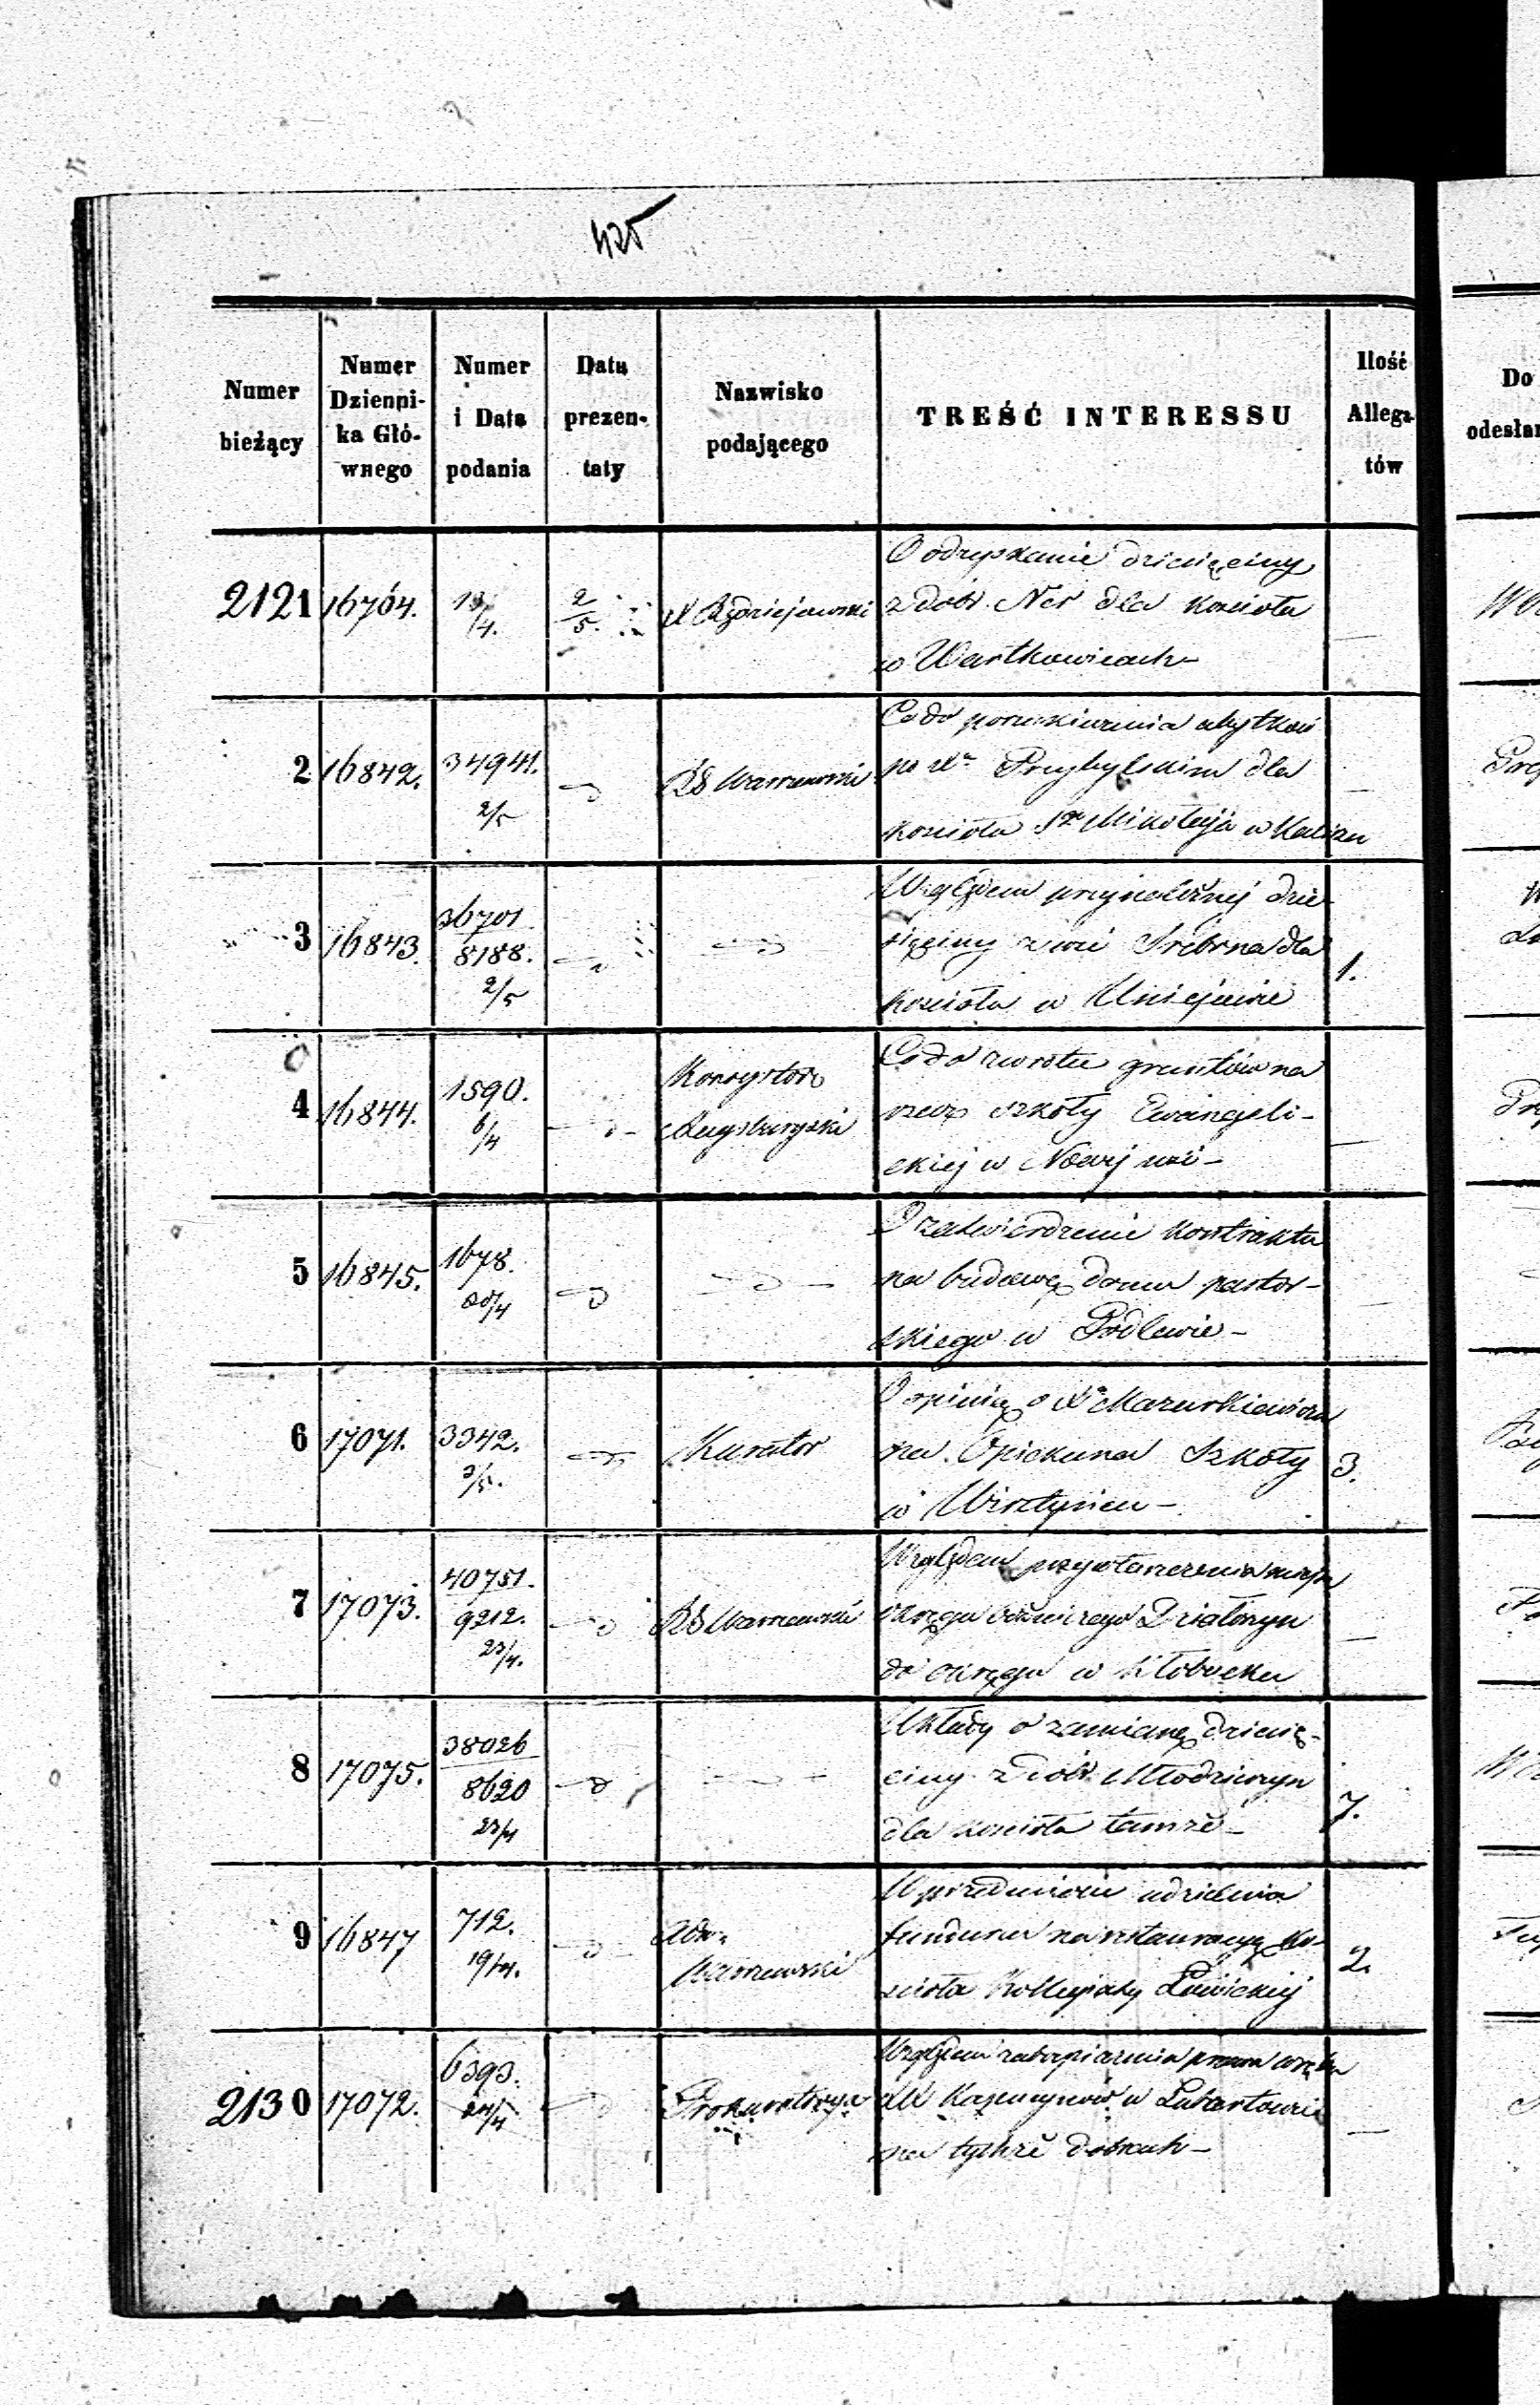 425
Numer bieżący
Numer Dzienni-ka Głó-wnego
Numer i Data podania
Data prezen-taty
Nazwisko podającego
TREŚĆ INTERESSU
Ilość Allega-tów
Do odesłan
2121 16764. 13/4. 2/5. X Rządziejewski
O odzyskanie dziesięciny
z dóbr Ner dla Kościoła
w Wartkowicach –
2 16842. 34941. 2/5 RG Warszawski
Co do poszukiwania ubytków
po Xu Przybylskim dla
Kościoła Sgo Mikołaja w Kaliszu
3 16843. 36701 8188. 2/5
Względem przynależnej dzie-
sięciny z wsi Srebrna dla
Kościoła w Uniejowie
1.
4 16844. 1590. 6/4
Konsystorz
Augsburgski
Co do zwrotu gruntów na
rzecz szkoły Ewangeli-
ckiej w Nowej wsi –
5 16845. 1678. 20/4
O zatwierdzenie Kontraktu
na budowę domu pastor-
skiego w
6 17071. 3342. 2/5. Kurator
O opinię o Xu Mazurkiewiczu
na Opiekuna Szkoły
w
3.
7 17073. 40751. 9212. 23/4. RG Warszawski
Względem
okręgu bóżniczego Działoszyn
do okręgu w Kłobucku
8 17075. 38026 8620 23/4
Układy o zamianę dziesię-
ciny z dóbr Młodzieszyn
dla kościoła tamże –
7.
9 16847 712. 19/4.
Adm.
Warszawski
W przedmiocie udzielenia
funduszu na restauracyą Ko-
ścioła Kollegiaty Łowickiej
2.
2130 17072. 6393. 24/4 Prokuratorya
Względem zabezpieczenia prawa
XX Kapucynów w Lubartowie
na tychże dobrach –